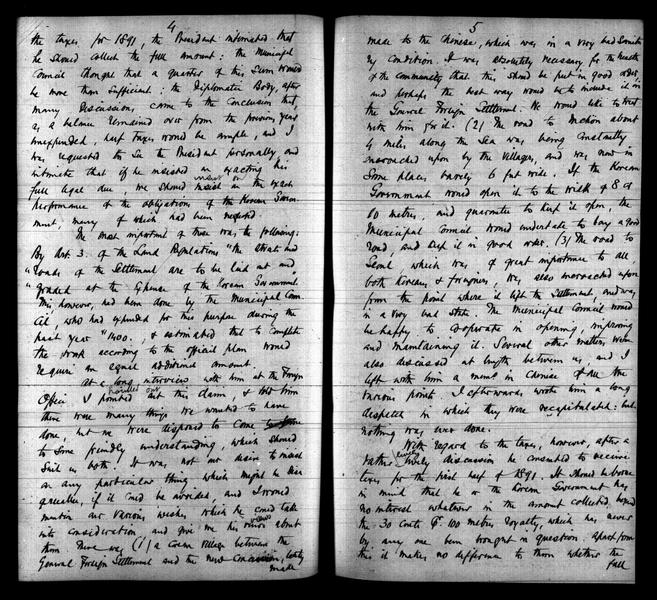 4
the taxes for 1891, the President intimated that
he should collect the full amount: the Municipal
Council thought that a quarter of this sum would
be more than sufficient: the Diplomatic Body, after
many discussions, came to the conclusion that,
as a balance remained over from the previous year
unexpended, half taxes would be ample, and I
was requested to see the President personally and
intimate that if he insisted in exacting his
full legal due, we should insist on the exact
performance of the obligations of the Korean Govern-
ment, many of which had been neglected.
The most important of these was the following:
By Art. 3. of the Land Regulations "The streets and
"roads of the Settlement are to be laid out and
"graded at the expense of the Korean Government.
This, however, had been done by the Municipal Coun-
cil, who had expended for this purpose during the
past year $1400. & estimated that to complete
the work according to the official plan would
require an equal additional amount.
At a long interview with him at the Foreign
Office I pointed out this claim, & told him
there were many things we wanted to have
done, but we were disposed to come
to some friendly understanding, which should
suit us both. It was not our desire to insist
on any particular thing which might be
if it could be avoided, and I would
mention our various wishes which he could take
into consideration and give me his views about
them. There was (1) a Corean village between the
General Foreign Settlement and the new lately
made
5
made to the Chinese, which was in a very bad Sanita-
ry condition. It was absolutely necessary for the health
of the community that this should be put in good order,
and perhaps the best way would be to include it in
the General Foreign Settlement. We would like to treat
with him for it. (2) The road to about
4 miles along the Sea was being constantly
encroached upon by the villages, and was now in
some places barely 6 feet wide. If the Korean
Government would open it to the width of 8 or
10 metres, and guarantee to keep it open, the
Municipal Council would undertake to a good
road, and keep it in good order. (3) The road to
Seoul, which was of great importance to all,
both Koreans & foreigners, was also encroached upon
from the point where it left the Settlement, and was
in a very bad state. The Municipal Council would
be happy to cooperate in opening, improving
and maintaining it. Several other matters were
also discussed at length between us, and I
left with him a memo in Chinese of all the
various points. I afterwards wrote him a long
despatch in which they were recapitulated: but
nothing was ever done.
With regard to the taxes, however, after a
rather lively discussion he consented to receive
taxes for the first half of 1891. It should be borne
in mind that he or the Korean Government has
no interest whatever in the amount collected, beyond
the 30 cents pr 100 metres royalty, which has never
by any one been brought in question. Apart from
this it makes no difference to them whether the
full